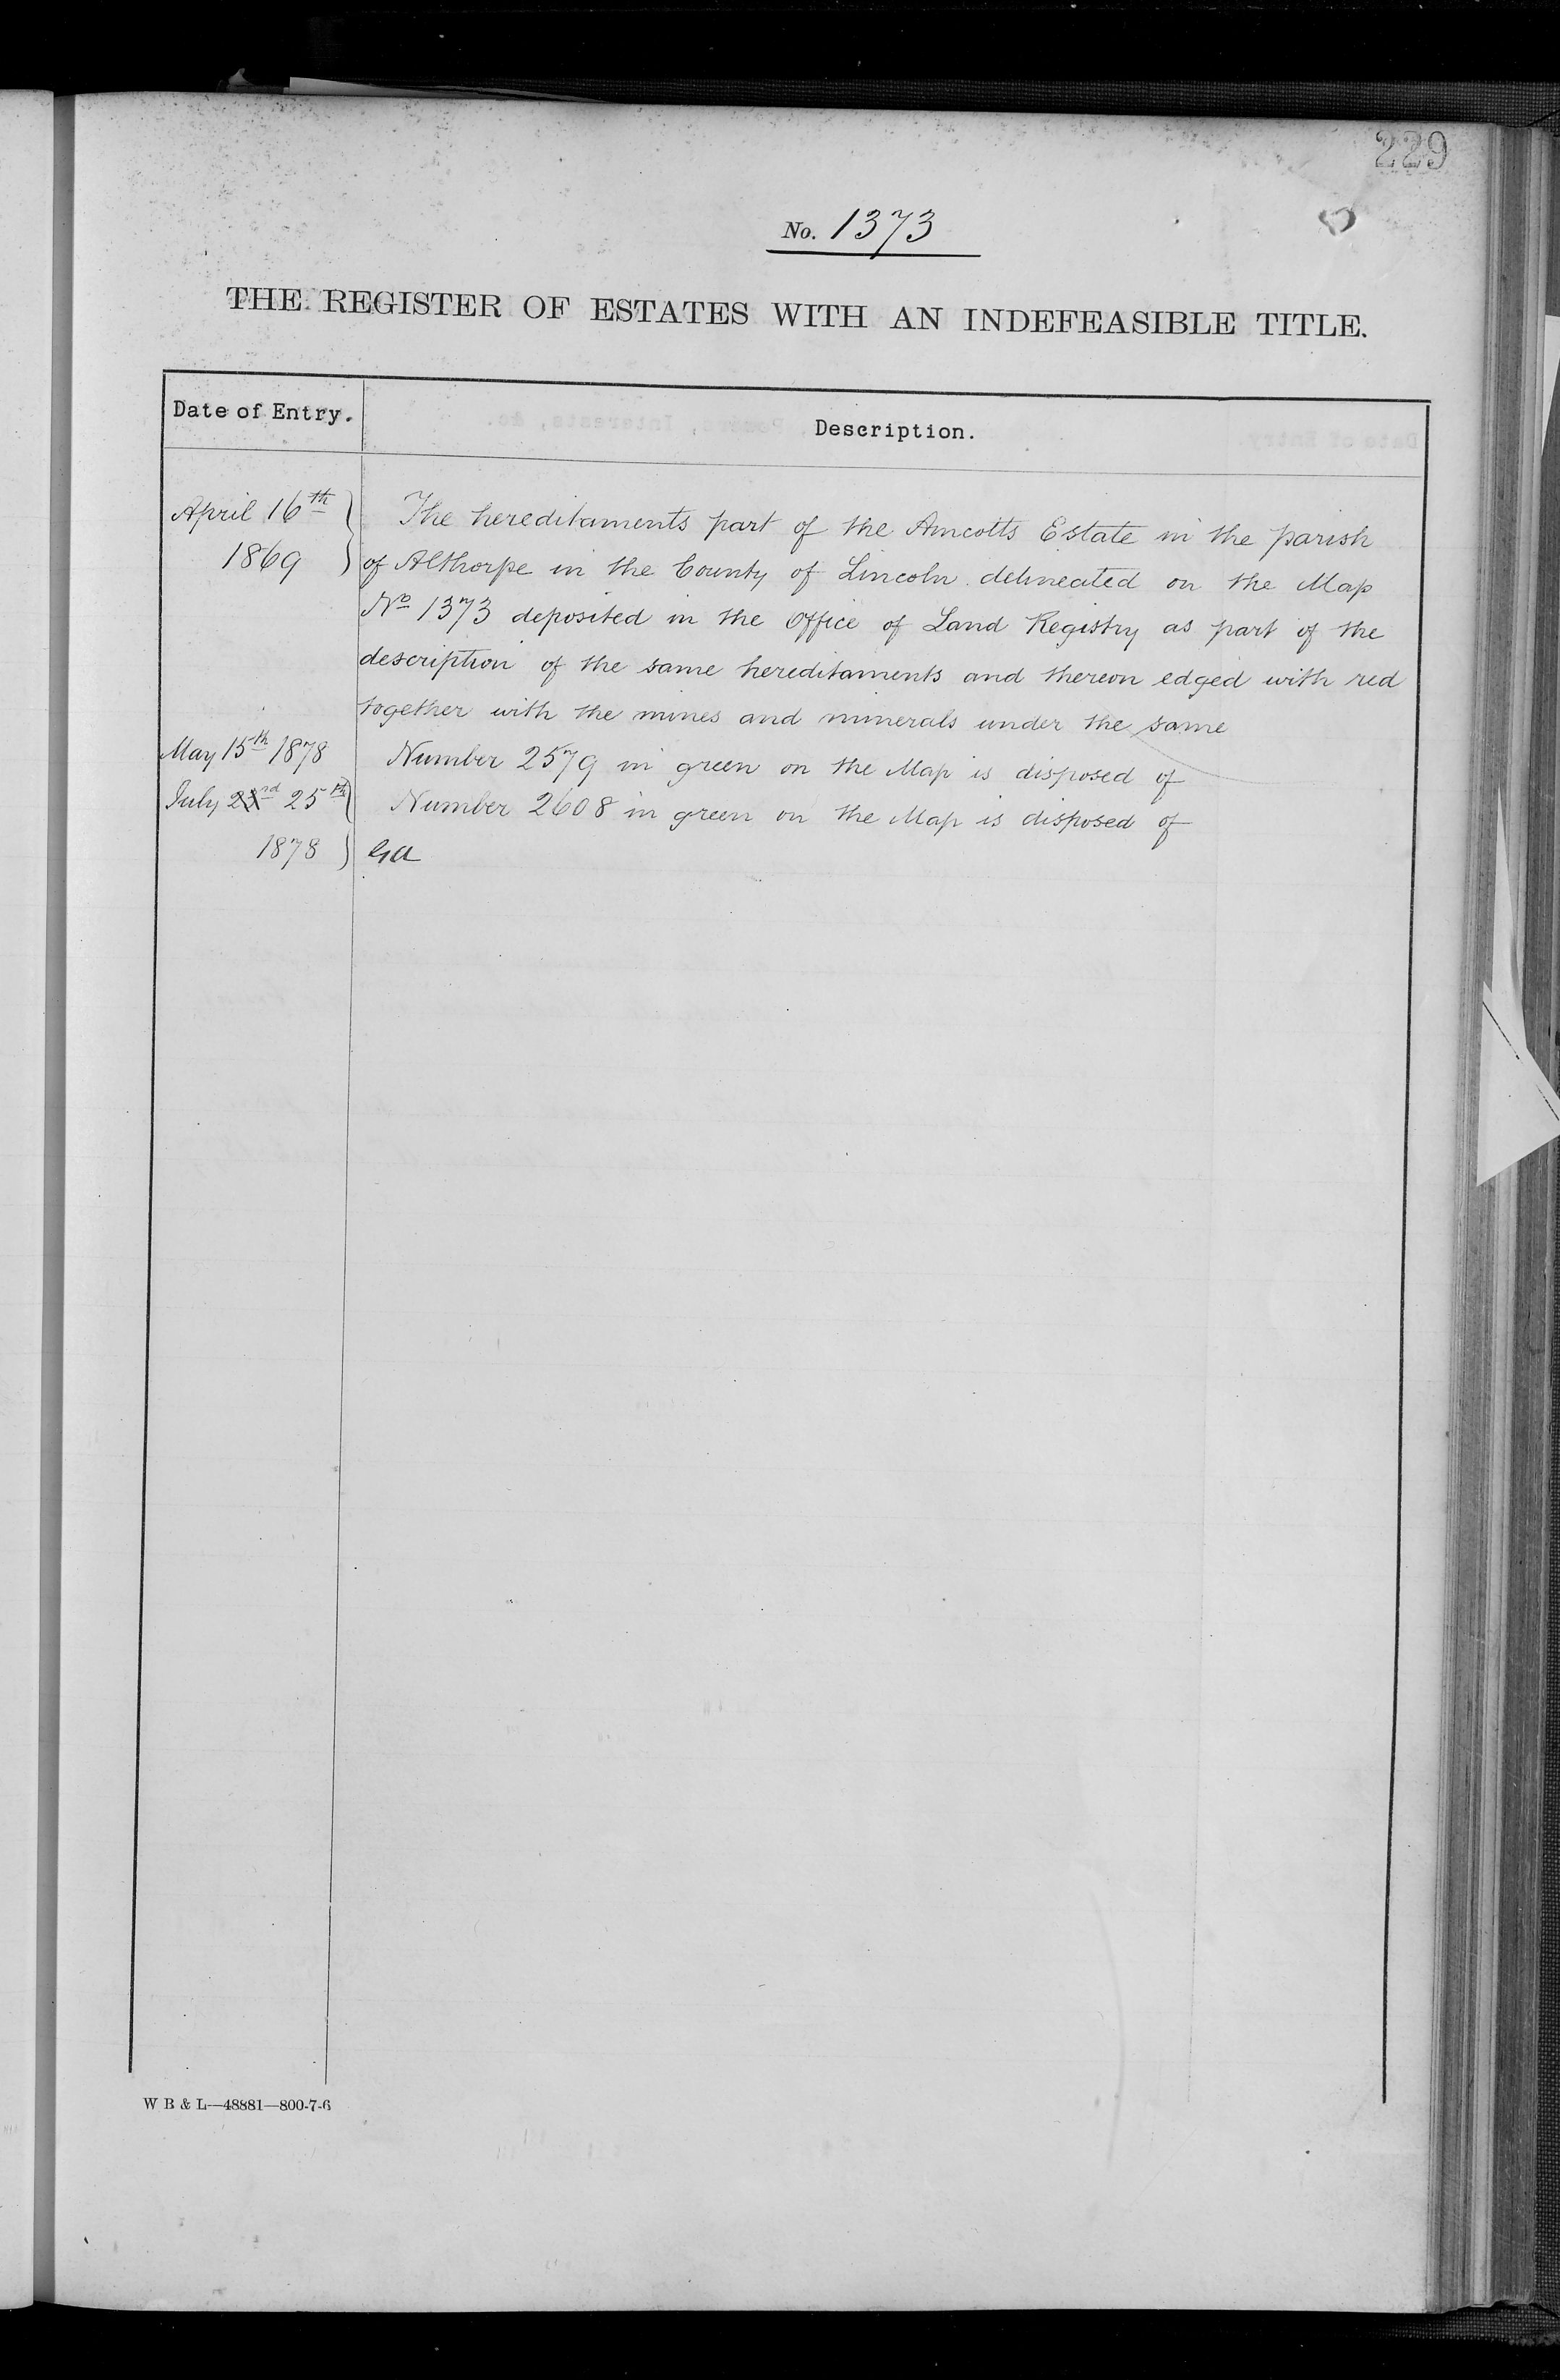 229
No. 1373
THE REGISTER OF ESTATES WITH AN INDEFEASIBLE TITLE.
Date of Entry.
Description.
April 16th
1869
The hereditaments part of the Amcotts Estate in the parish
of Althorpe in the County of Lincoln delineated on the Map
No 1373 deposited in the Office of Land Registry as part of the
description of the same hereditaments and thereon edged with red
together with the mines and minerals under the same
May 15th 1878 Number 2579 in green on the Map is disposed of
July 23rd 25th Number 2608 in green on the Map is disposed of
1878
W B & L—48881—800-7-6